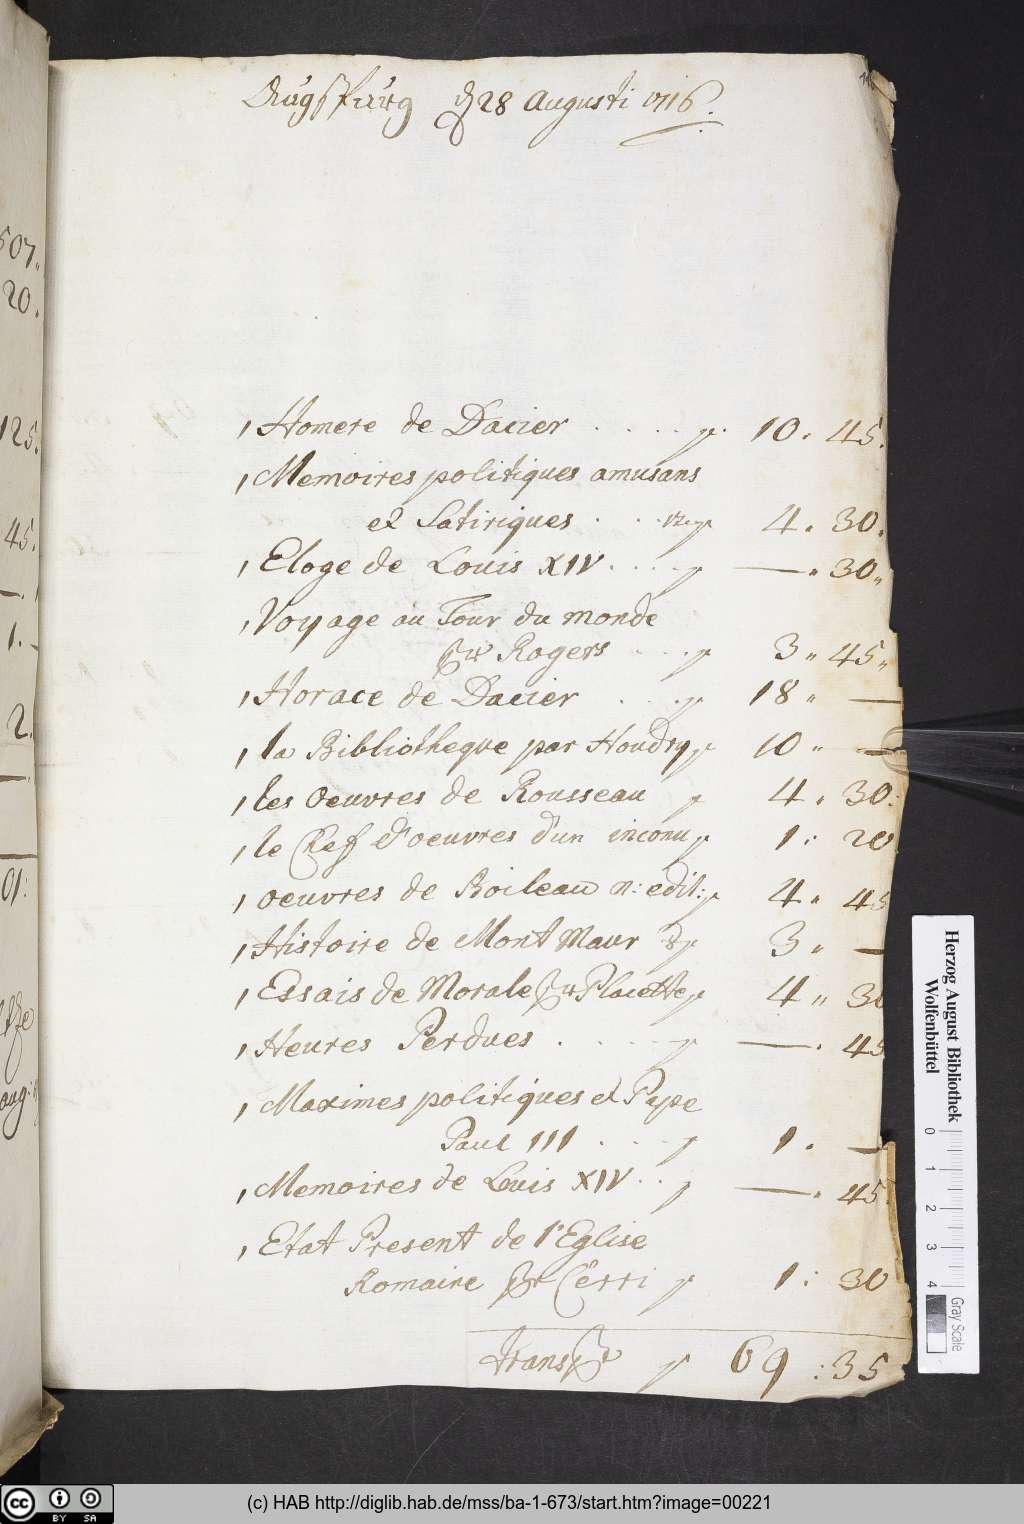 Augspurg d 28 Augusti 1716.
1 Homere de Dacier . . . . . 10. 45.
1 Memoires politiques amusans
et Satiriques . . . 12. 4. 30.
1 Eloge de Louis XIV . . . . — " 30 "
1 Voyage au Tour du monde
pr Rogers . . . 3 " 45 "
1 Horace de Dacier . . . 18 " —
1 la Bibliotheque par Houdry 10 " —
1 les Oeuvres de Rousseau 4 . 30 :
1 le Chef d'oeuvres d'un inconu 1 : 20
1 oeuvres de Boileau n: edit: 4 " 45
1 Histoire de Mont Maur 8 3 " —
1 Essais de Morale pr Placette 4 " 30
1 Heures Perdues . . . . — . 45
1 Maximes politiques et Pape
Paul III . . . 1 . —
1 Memoires de Louis XIV . . — " 45
1 Etat Present de l'Eglise
Romaine pr Cerri 1 : 30
Transp 69 : 35
507 "
20 .
125 .
45 .
1 . —
2 .
01 :
aug :
Herzog August Bibliothek
Wolfenbüttel
0 1 2 3 4
Gray Scale
cc BY SA
(c) HAB http://diglib.hab.de/mss/ba-1-673/start.htm?image=00221